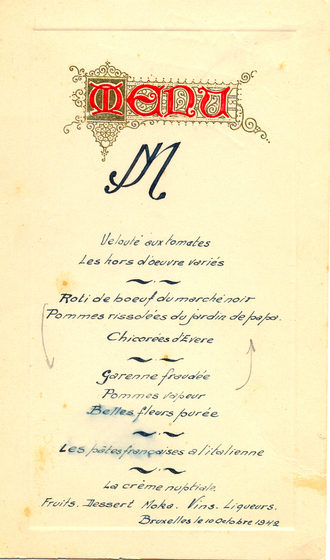 MENU
M
Velouté aux tomates
Les hors d'oeuvre variés
Roti de boeuf du marché noir
Pommes rissolées du jardin de papa.
Chicorées d'Evere
Garenne fraudée
Pommes vapeur
Belles fleurs purée
Les pâtes françaises a l'italienne
La crème nuptiale.
Fruits. Dessert Moka. Vins. Liqueurs.
Bruxelles le 10 Octobre 1942